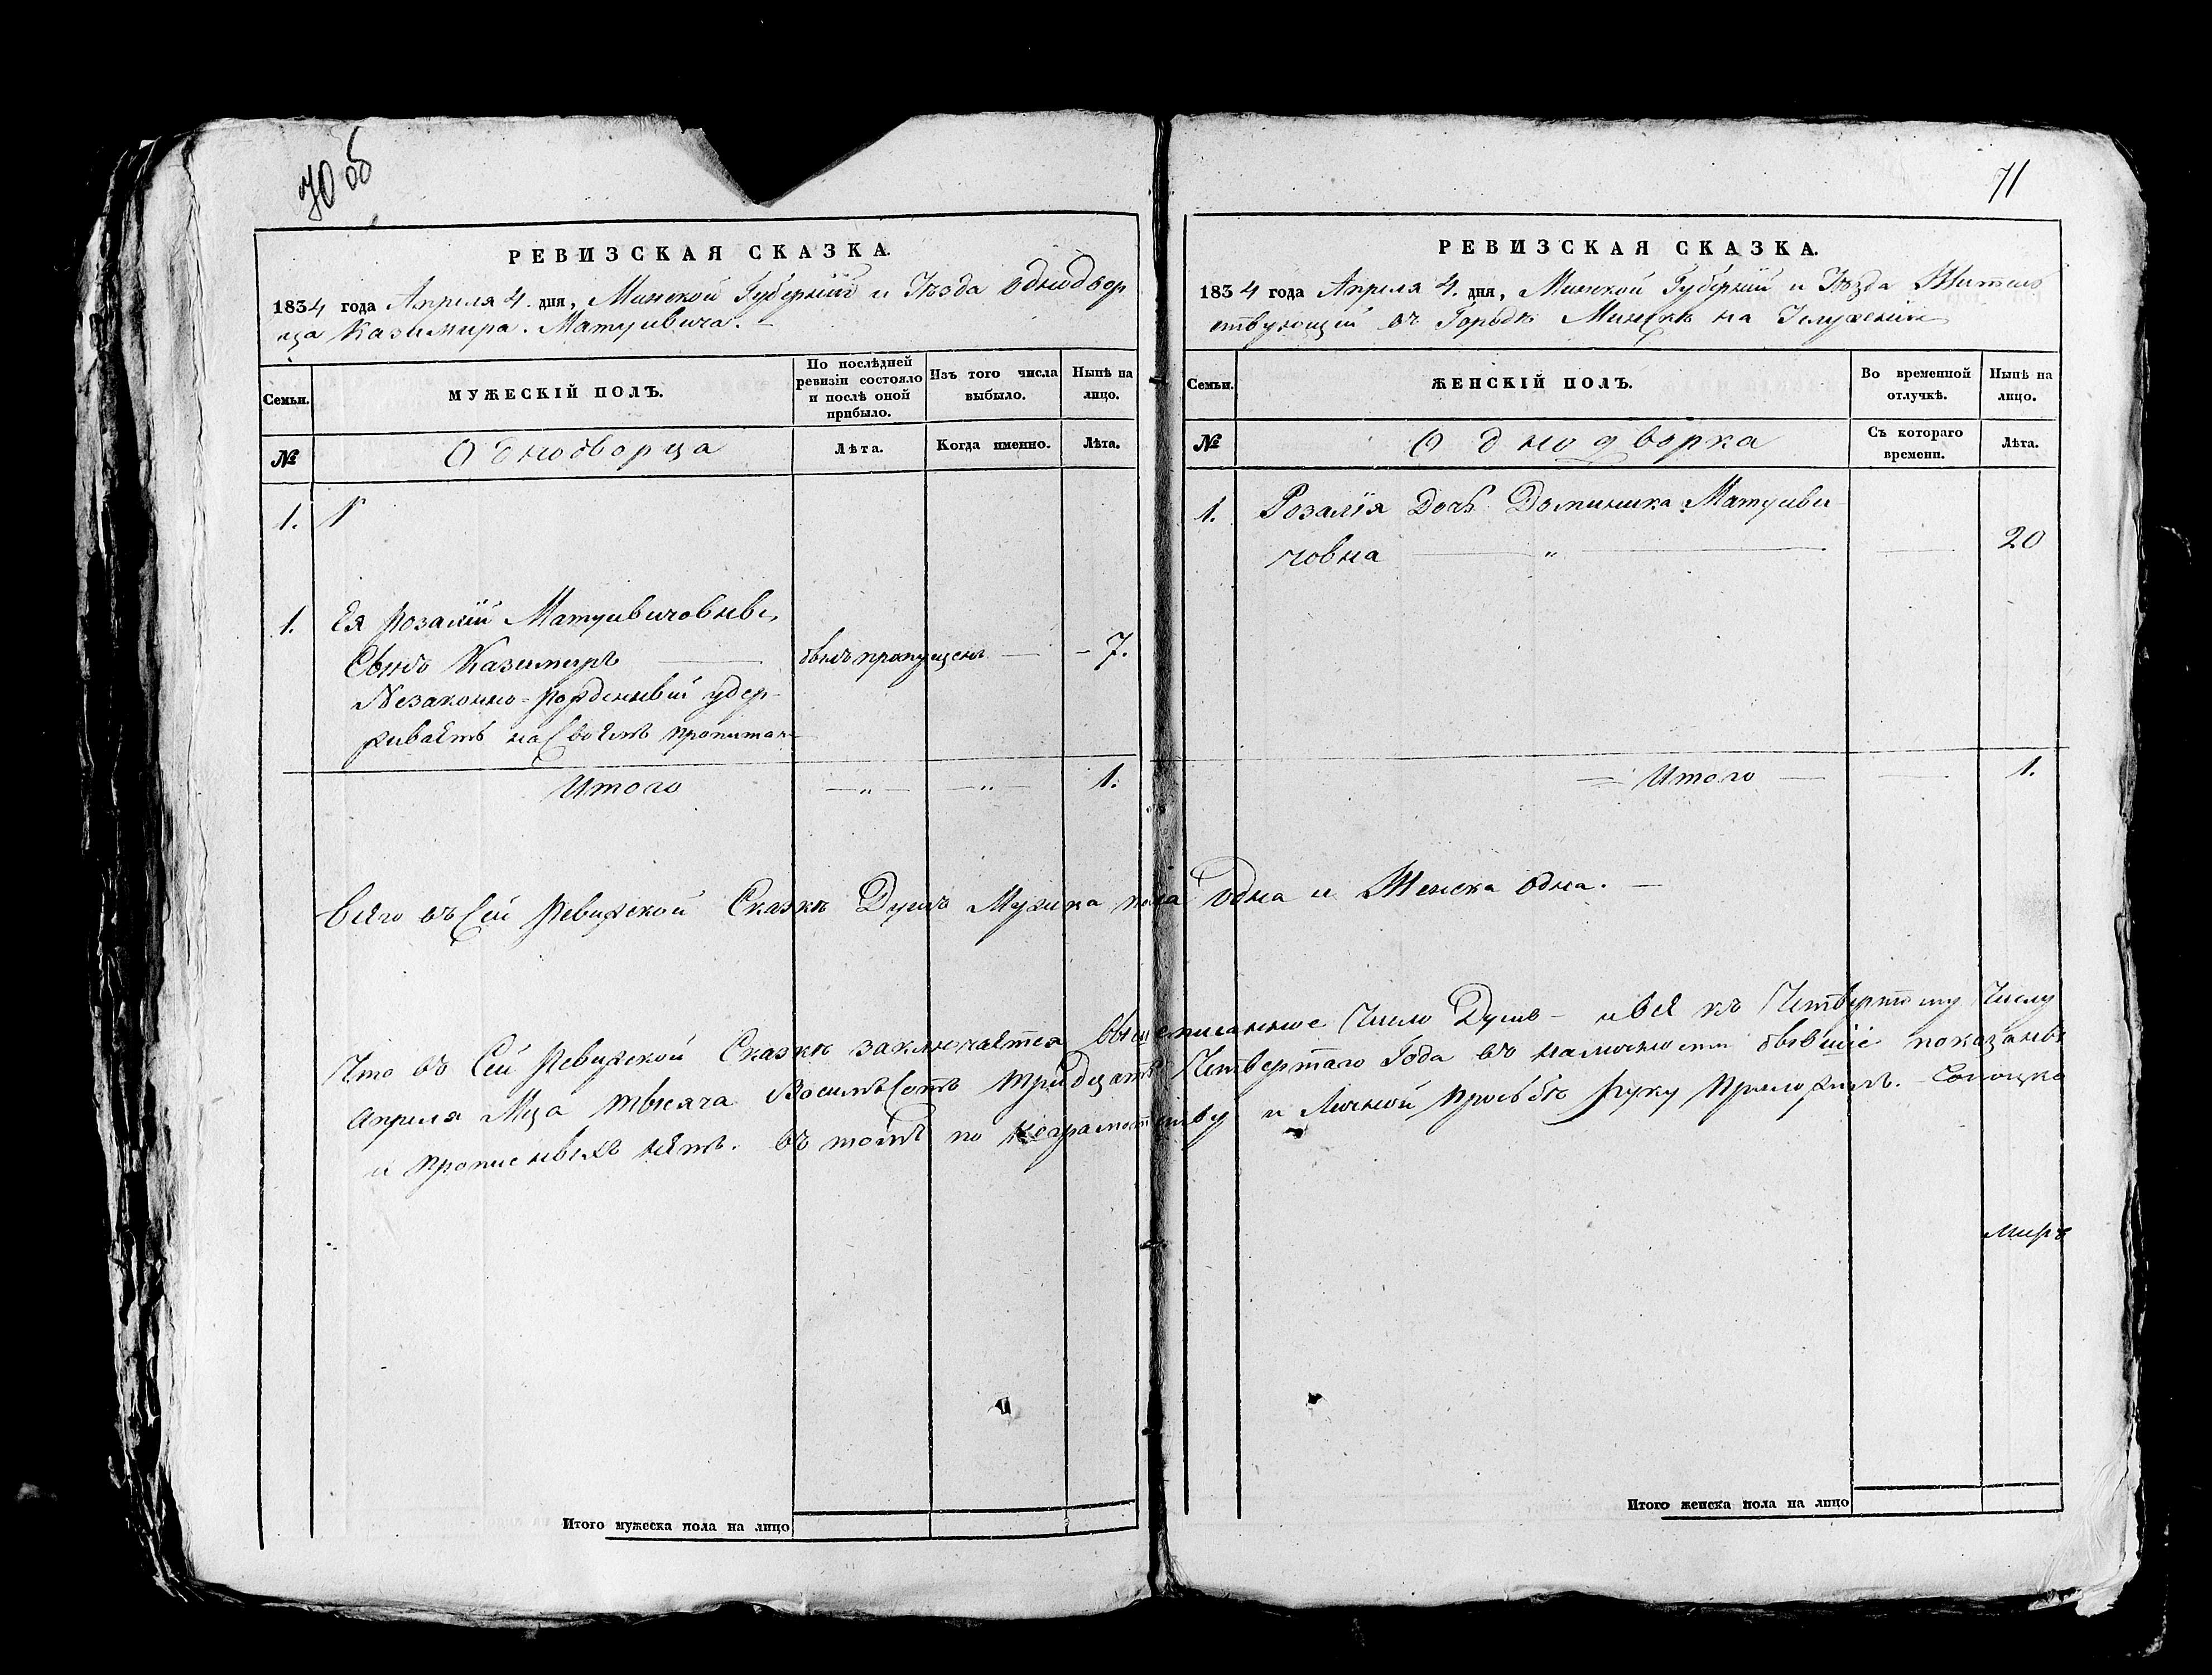 70 об
РЕВИЗСКАЯ СКАЗКА.
1834 года Апреля 4. дня, Минской Губерніи и Уѣзда однодвор
ца Казимира Матуивича. –
Семьи.
МУЖЕСКІЙ ПОЛЪ.
По послѣдней ревизіи состояло и послѣ оной прибыло.
Изъ того числа выбыло.
Нынѣ на лицо.
№
Однодворца
Лѣта.
Когда именно.
Лѣта.
1.
1.
Ея Розаліи Матуивичовны
Сынъ Казимиръ
былъ пропущенъ
7.
Незаконно-рожденный удер-
живаетъ на своемъ пропитан
Итого — „ — — „ — 1.
71
РЕВИЗСКАЯ СКАЗКА.
1834 года Апреля 4. дня, Минской Губерніи и Уѣзда Житель
ствующей въ Городѣ Минскѣ на Услуженіи
Семьи.
ЖЕНСКІЙ ПОЛЪ.
Во временной отлучкѣ.
Нынѣ на лицо.
№
Однодворка
Съ котораго времени.
Лѣта.
1. Розалія Дочь Доминика Матуиви-
човна — „ — 20
Итого 1.
Всего въ Сей Ревижской Сказкѣ Душъ Мужска пола Одна и Женска Одна. —
Что въ Сей Ревижской Сказкѣ заключается вышеписанное Число Душъ – и всѣ къ Четвертому Числу
Апреля Мца тысяча Восемьсотъ тридцать Четвертаго Года въ наличности бывшіе показаны
и прописныхъ нетъ. въ томъ по неграмотству и Личной прозьбѣ руку приложилъ. –
Итого мужеска пола на лицо
Итого женска пола на лицо